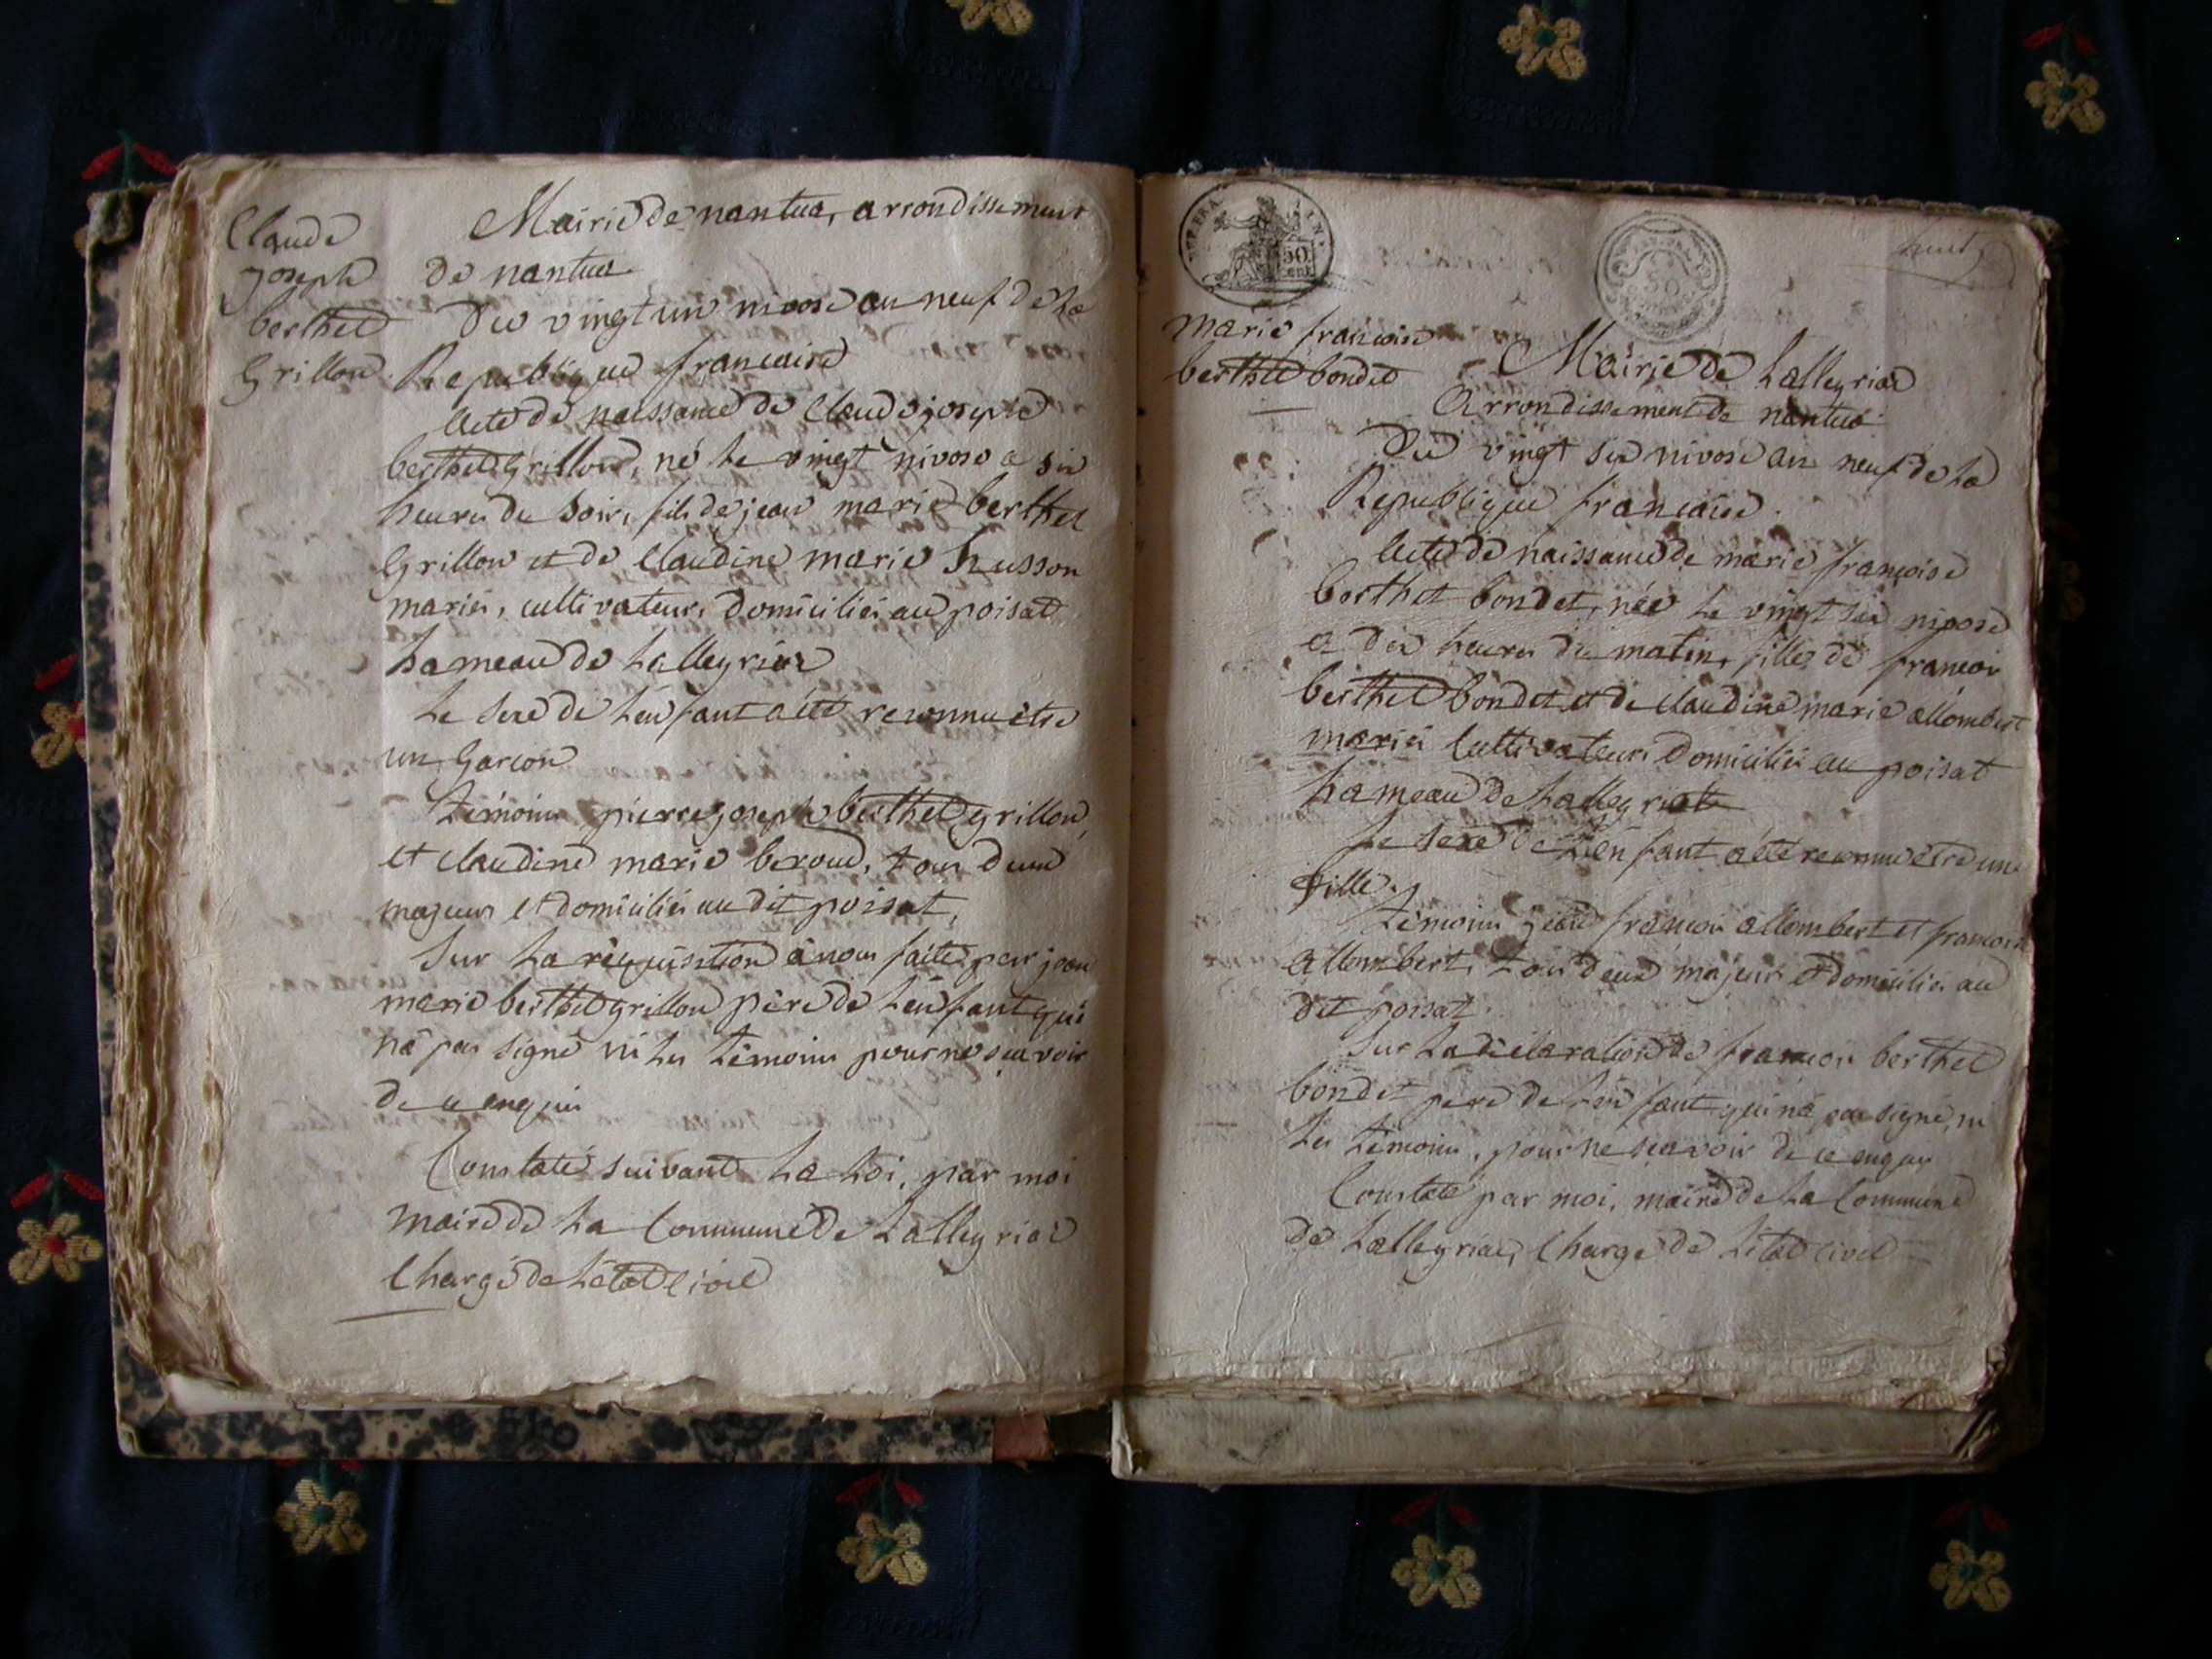 Claude
joseph
berthet
Grillon
Mairie de nantua, arrondissement
de nantua
Du vingt un nivose an neuf de la
Republique francaise
Acte de naissance de Claude joseph
berthet Grillon, né le vingt nivose a six
heures du soir, fils de jean marie berthet
Grillon et de Claudine marie husson
mariés, cultivateurs domiciliés au poisat
hameau de Lalleyriat
Le sexe de lenfant a été reconnu être
un Garcon
Témoins pierre joseph berthet grillon,
et claudine marie beroud, tous deux
majeurs et domiciliés au dit poisat,
Sur la réquisition à nous faite par jean
marie berthet grillon père de lenfant qui
na pas signé ni les témoins pour ne scavoir
de ce enquis
Constaté suivant la Loi, par moi
maire de la Commune de Lalleyriat
Chargé de Létat civil
FRA
50
CENT
huit
marie francoise
berthet bondet
Mairie de Lalleyriat
Arrondissement de nantua
Du vingt six nivose an neuf de la
Republique francaise.
Acte de naissance de marie françoise
berthet bondet, née le vingt six nivose
a dix heures du matin, fille de francois
berthet bondet et de claudine marie allombert
mariés Cultivateurs domiciliés au poisat
hameau de Lalleyriat
Le sexe de Lenfant a été reconnu être une
fille.
Témoins jean francois allombert et francois
allombert, tous deux majeurs et domiciliés au
dit poisat.
Sur la déclaration de francois berthet
bondet pere de lenfant qui na pas signé, ni
les témoins, pour ne scavoir de ce enquis
Constaté par moi, maire de la Commune
de Lalleyriat, Chargé de Létat civil